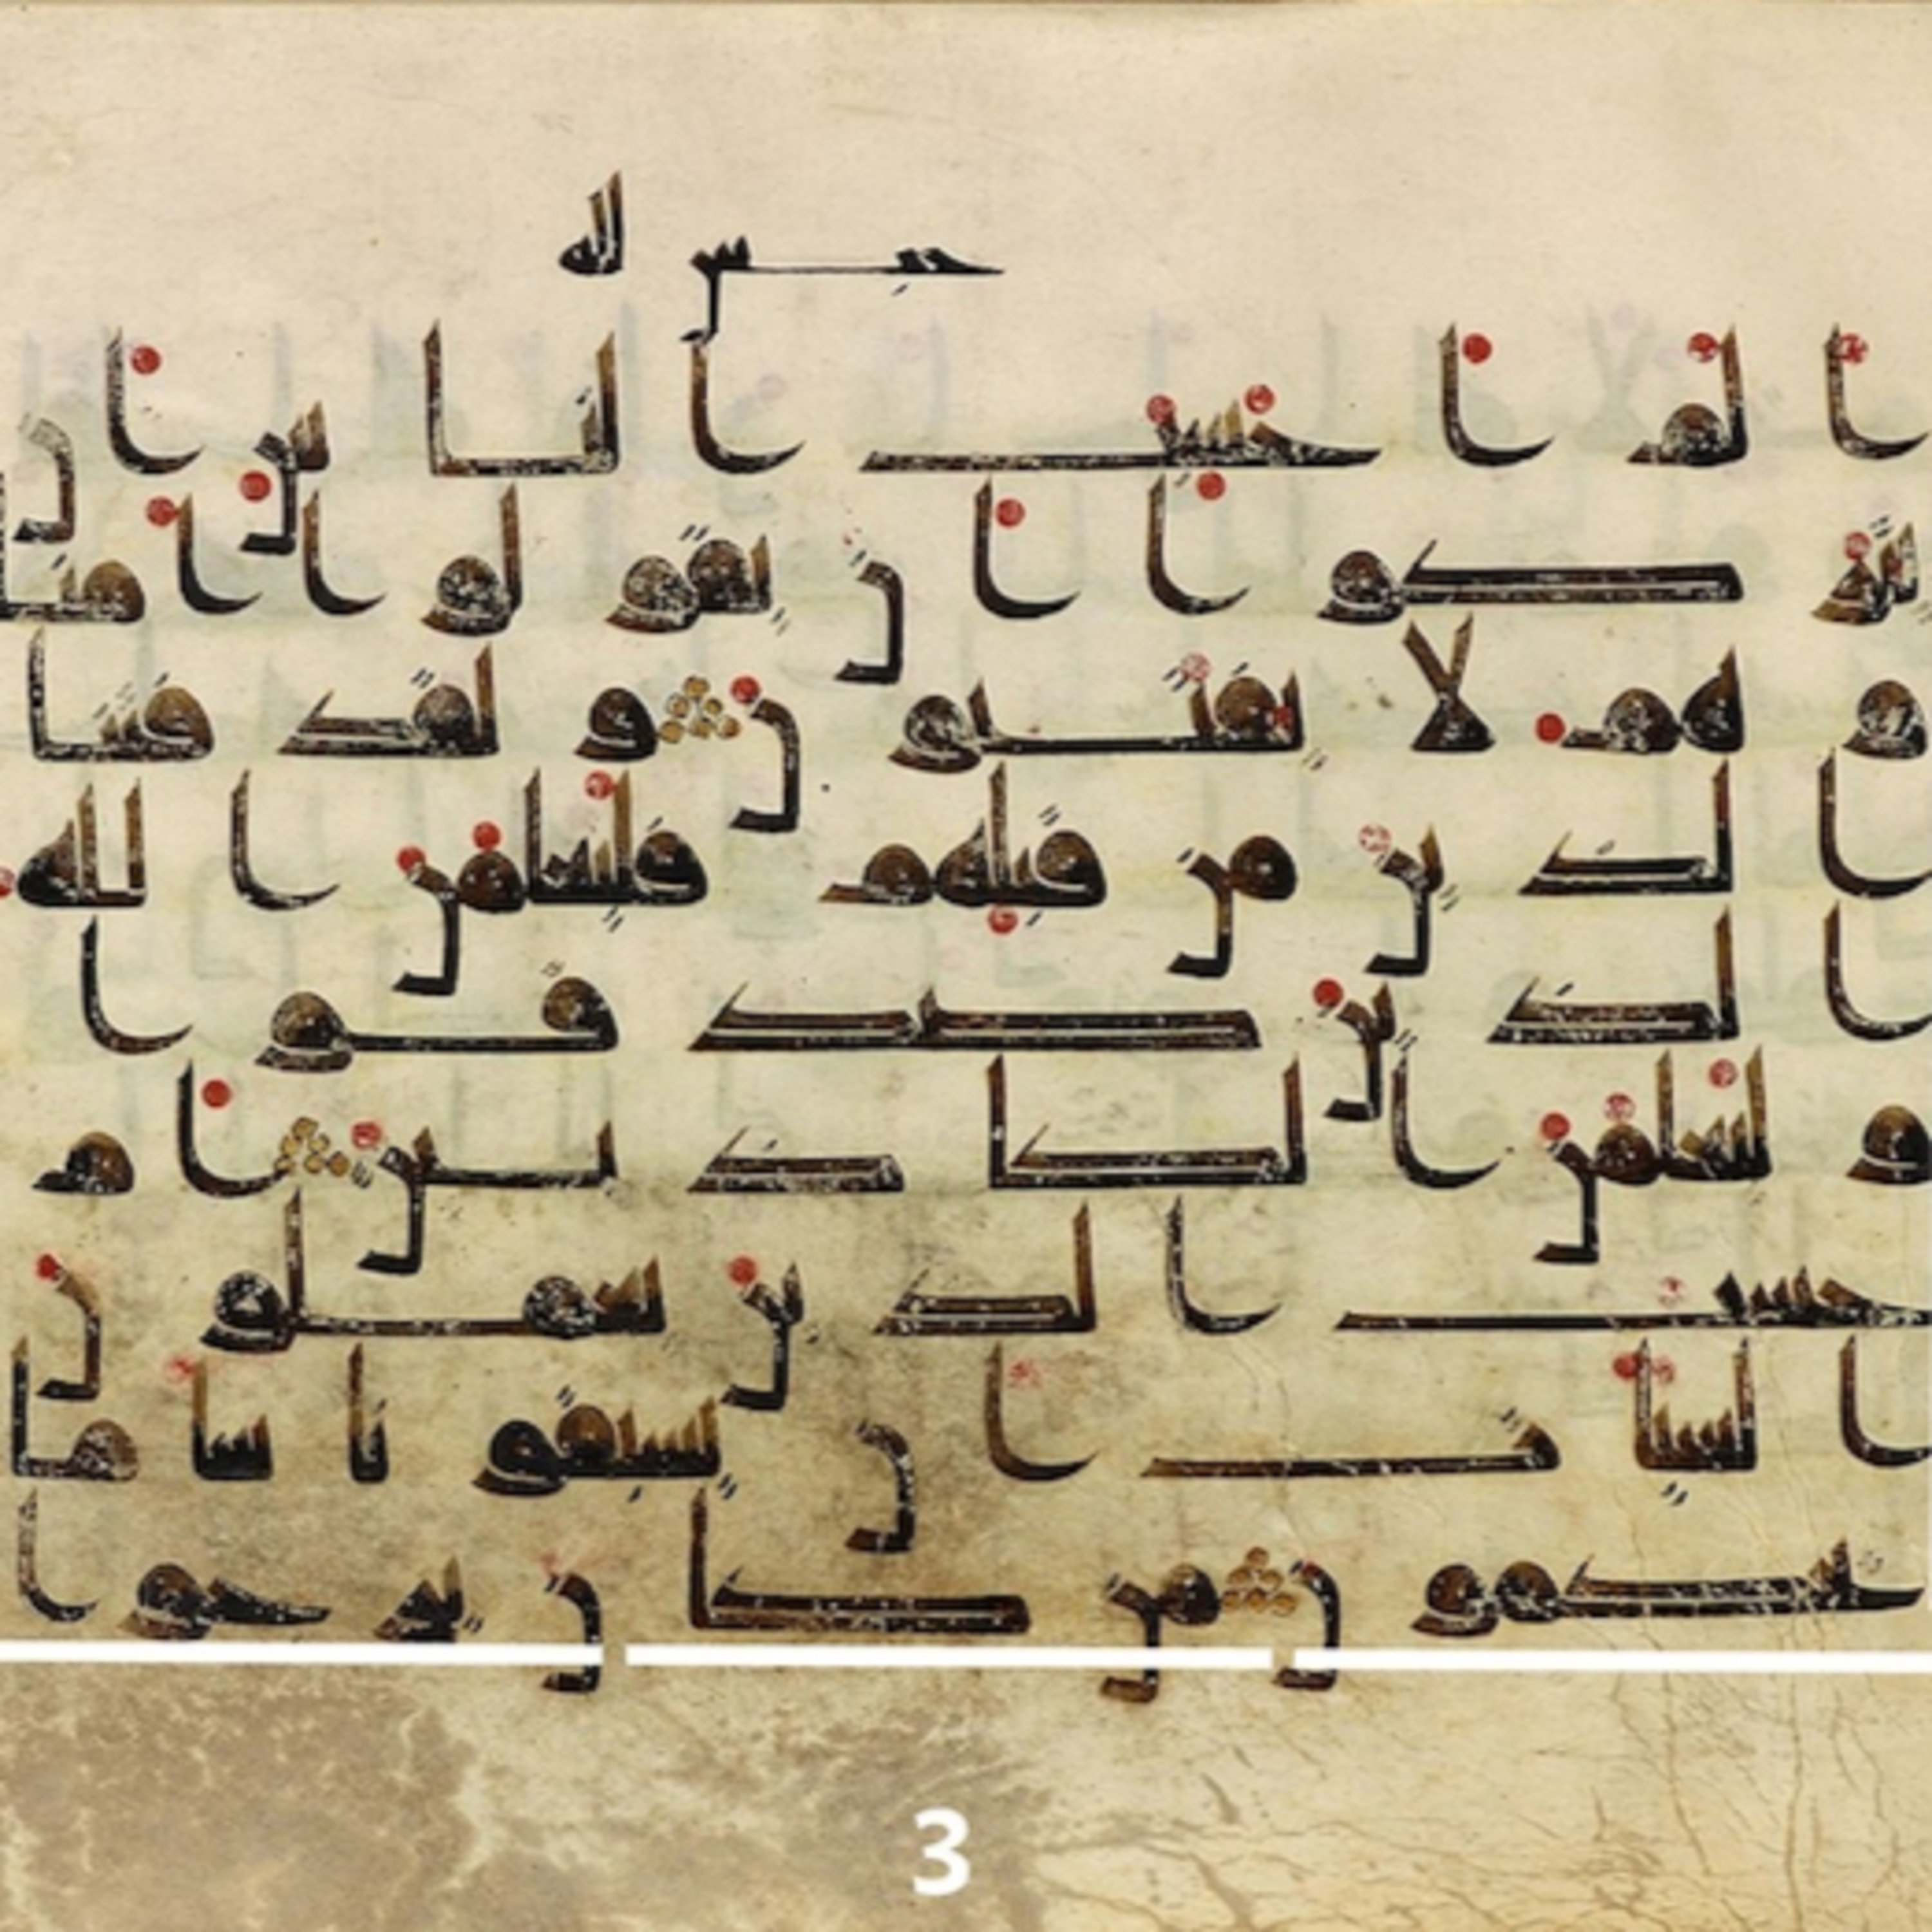 حبس لله
الم احسب الناس ان
يتركوا ان يقولوا امنا
وهم لا يفتنون ولقد فتنا
الذين من قبلهم فليعلمن الله
الذين صدقوا
وليعلمن الكاذبين ام
حسب الذين يعملون
السيات ان يسبقونا سا ما
يحكمون من كان يرجوا
3